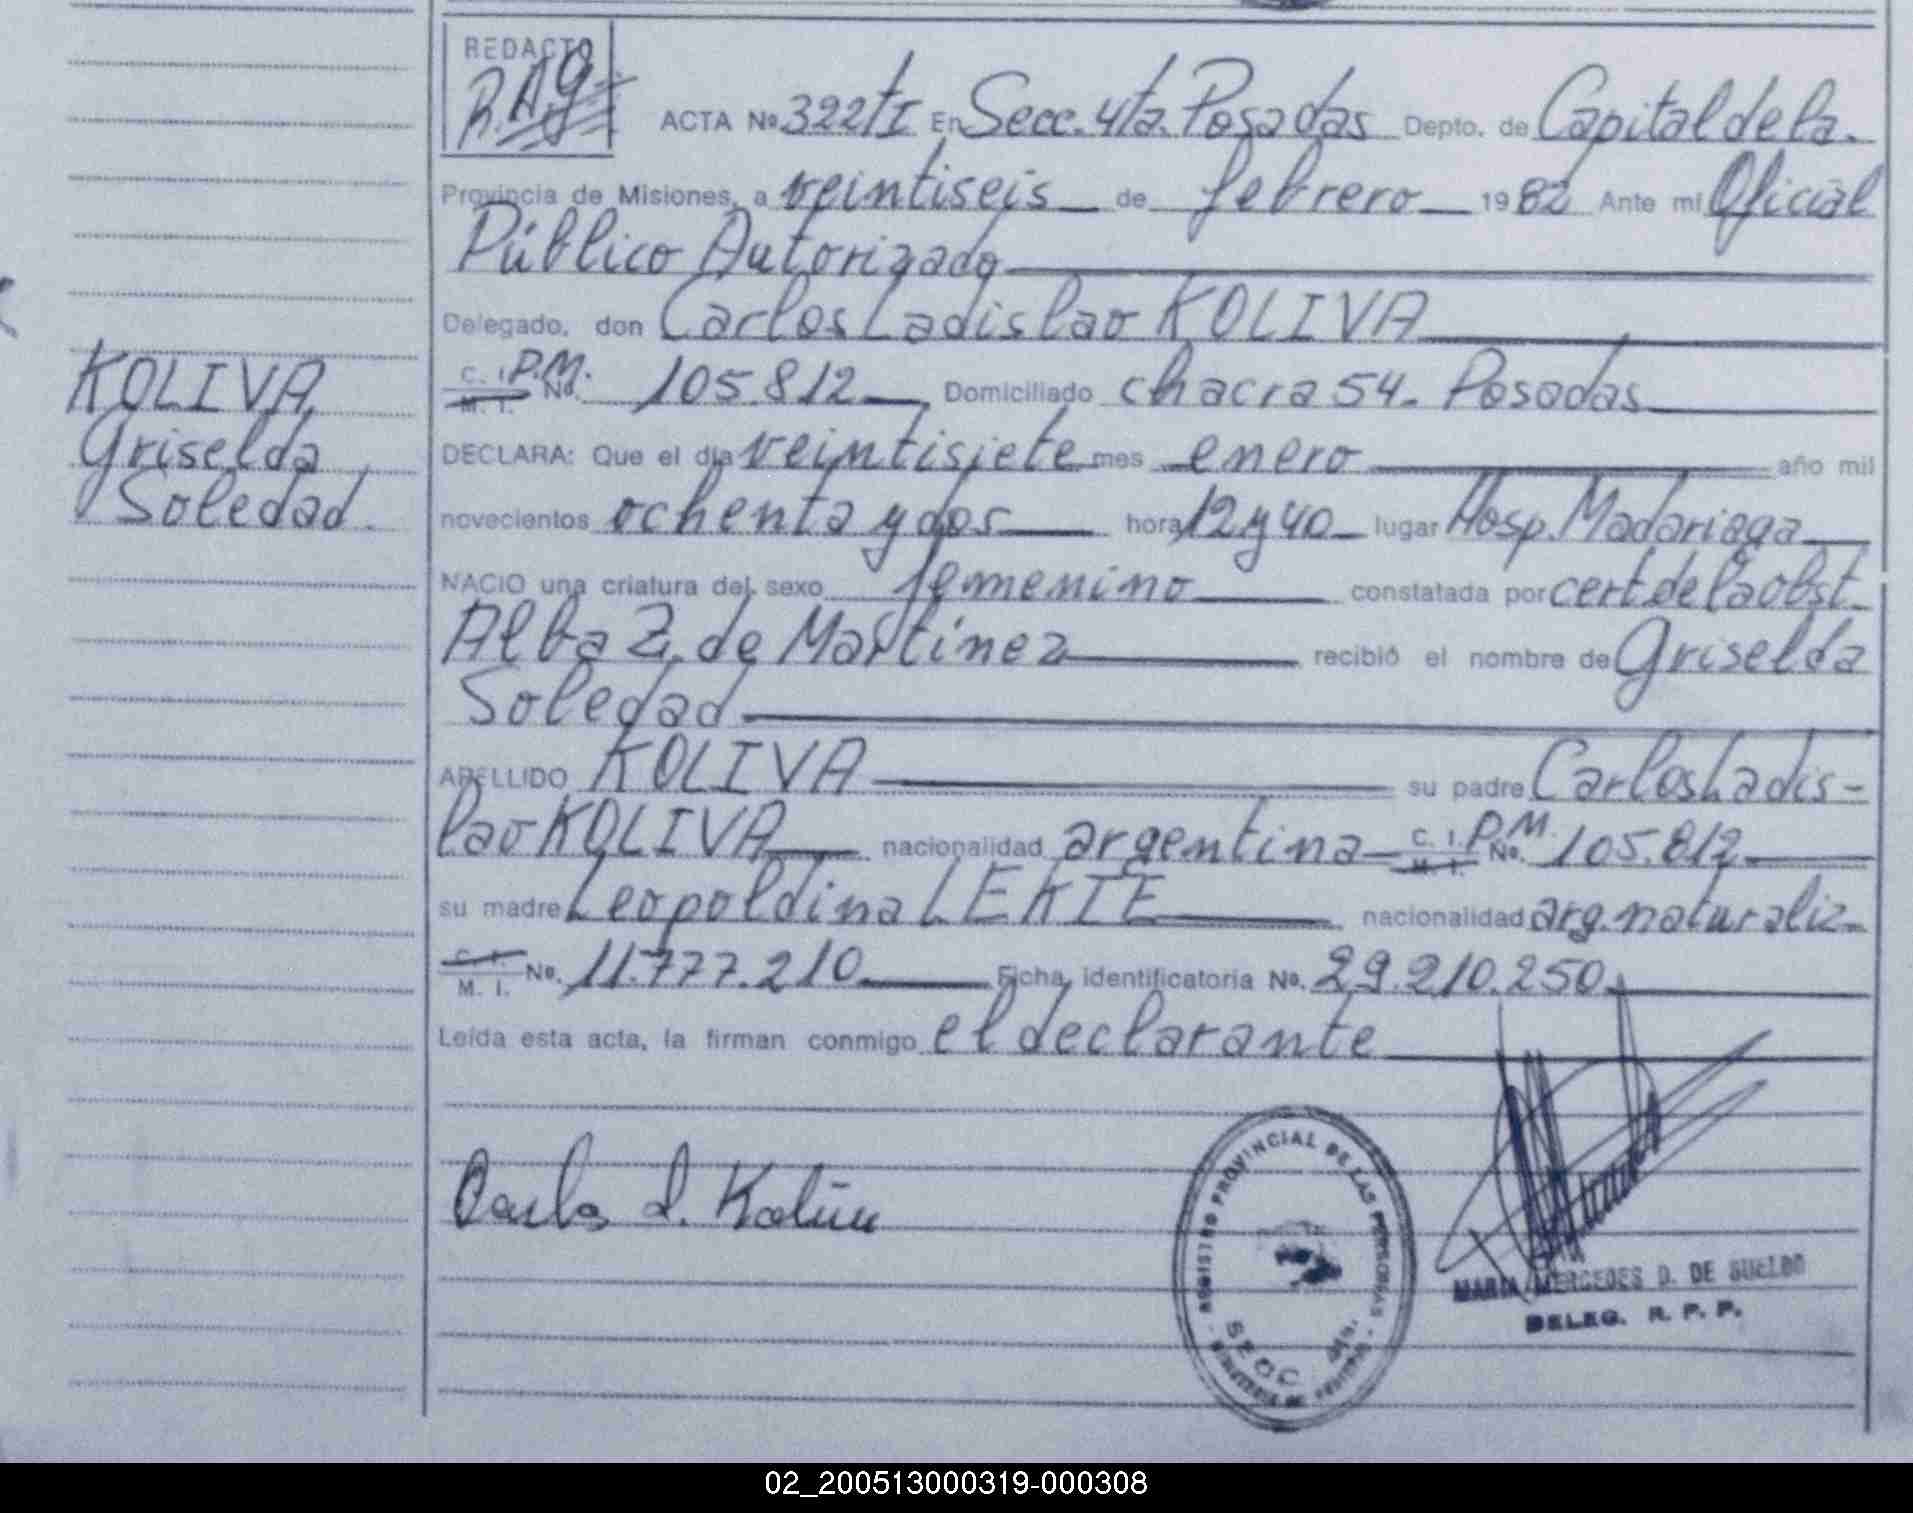 REDACTO
R.Ag
ACTA Nº 322tI En Secc. 4ta. Posadas Depto. de Capital de la.
Provincia de Misiones, a veintiseis de febrero 1982 Ante mi Oficial
Público Autorizado
Delegado, don Carlos Ladislao KOLIVA
C. I. P.M. No. 105.812 Domiciliado chacra 54. Posadas
M. I.
KOLIVA
Griselda
Soledad.
DECLARA: Que el día veintisiete mes enero año mil
novecientos ochenta y dos hora 12 y 40 lugar Hosp. Madariaga
NACIO una criatura del sexo femenino constatada por cert. de la obst.
Alba Z. de Martínez recibió el nombre de Griselda
Soledad
APELLIDO KOLIVA su padre Carlos Ladis-
lao KOLIVA nacionalidad argentina C. I. P.M. No. 105.812
M. I.
su madre Leopoldina LEKIE nacionalidad arg. naturaliz-
C. I.
M. I. No. 11.777.210 Ficha identificatoria No. 29.210.250
Leída esta acta, la firman conmigo el declarante
Carlos L. Koliva
REGISTRO PROVINCIAL DE LAS PERSONAS
SECC 4ta.
MARIA MERCEDES D. DE SUELDO
DELEG. R. P. P.
02_200513000319-000308